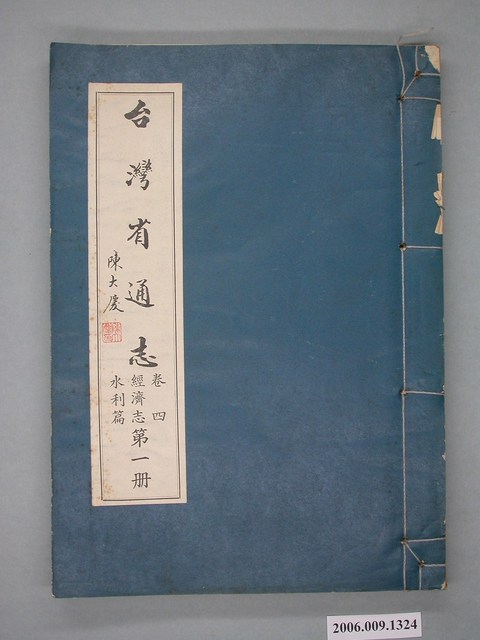 台灣省通志
陳大慶
卷四
經濟志
水利篇
第一册
2006.009.1324